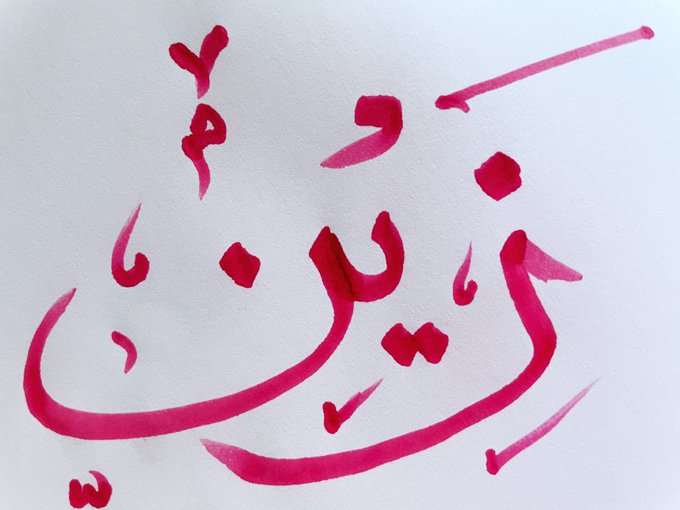 زَيْن